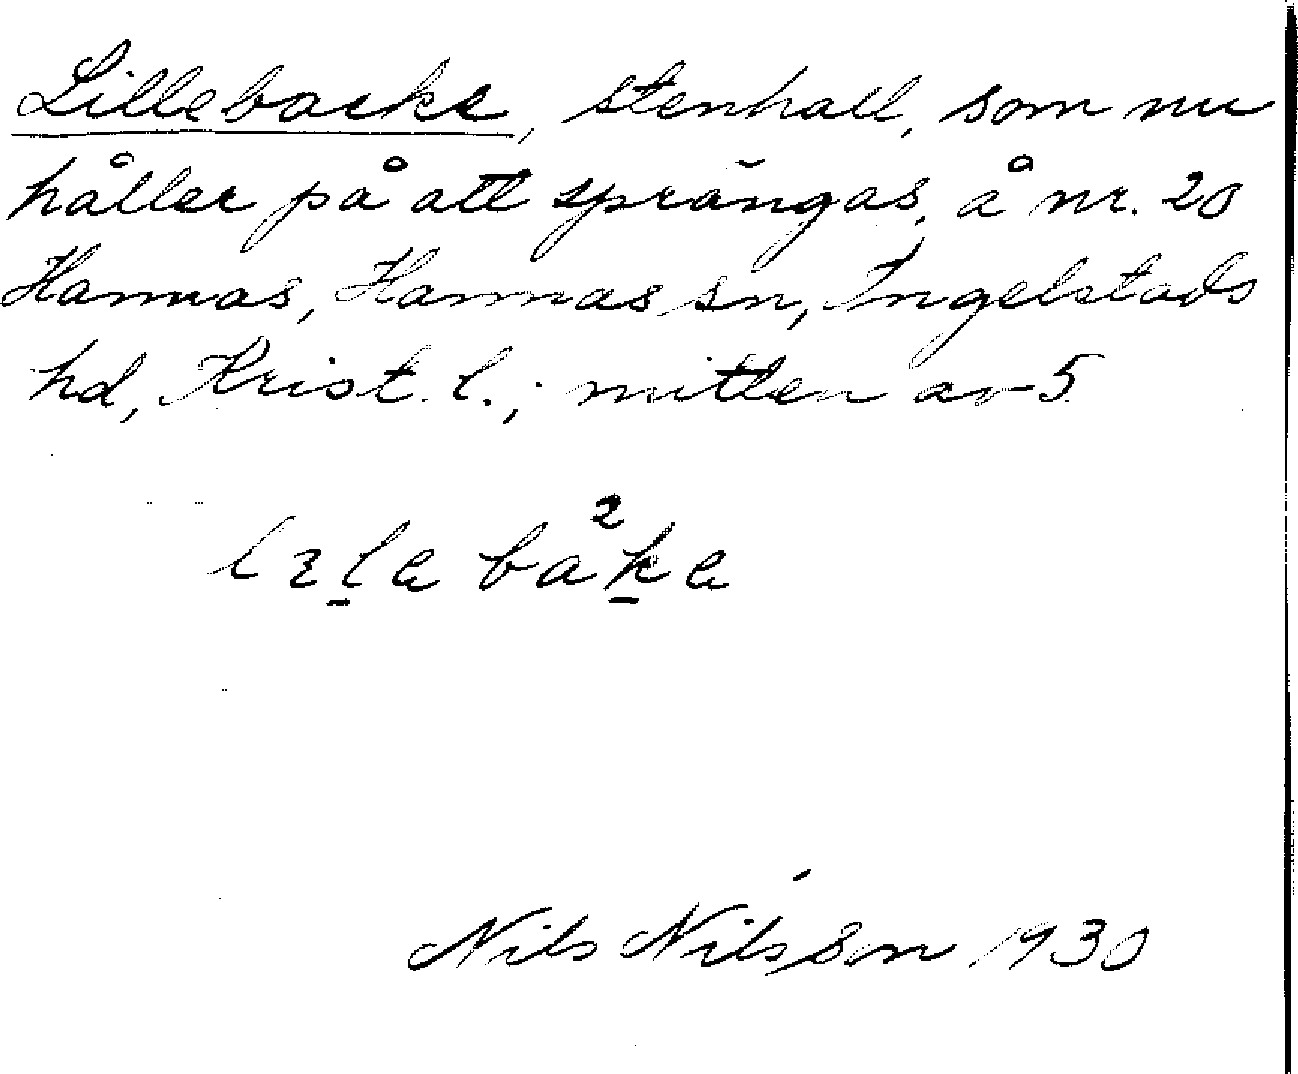 Lillebacke, stenhall, som nu
håller på att sprängas, å nr. 20
Hannas, Hannas sn, Ingelstads
hd, Krist. l.; mitten av 5.
Nils Nilsson 1930